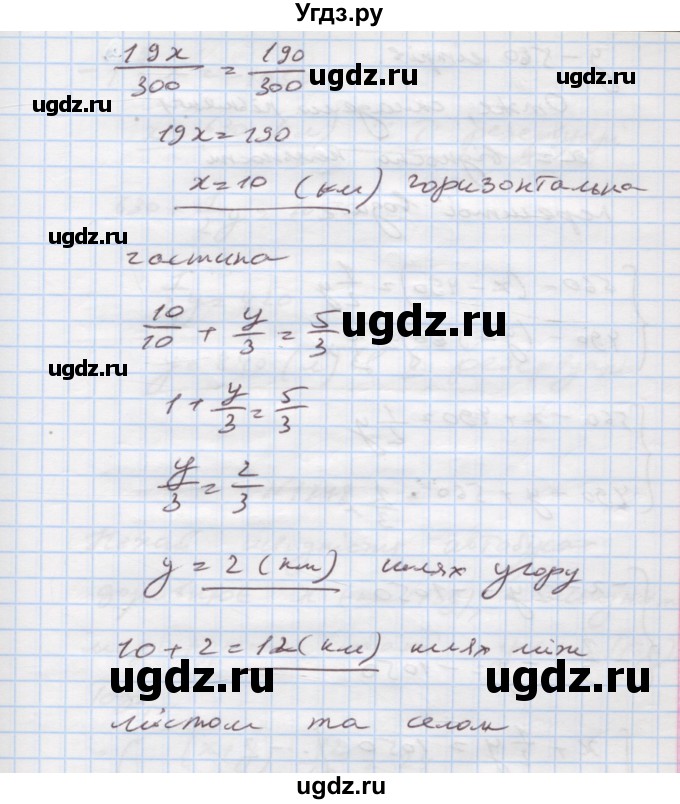 Угдз.ру
19x/300 = 190/300
19x=190
x=10 (км) горизонтальна
частина
10/10 + y/3 = 5/3
1 + y/3 = 5/3
y/3 = 2/3
y = 2 (км) шлях угору
10 + 2 = 12 (км) шлях між
містом та селом
ugdz.ru
ugdz.ru
ugdz.ru
ugdz.ru
ugdz.ru
ugdz.ru
ugdz.ru
ugdz.ru
ugdz.ru
ugdz.ru
ugdz.ru
ugdz.ru
ugdz.ru